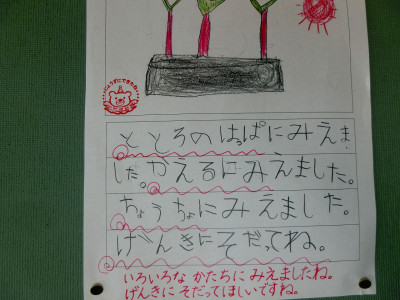 ととろのはっぱにみえま
した。かえるにみえました。
ちょうちょにみえました。
げんきにそだってね。
いろいろな かたちに みえましたね。
げんきに そだってほしいですね。